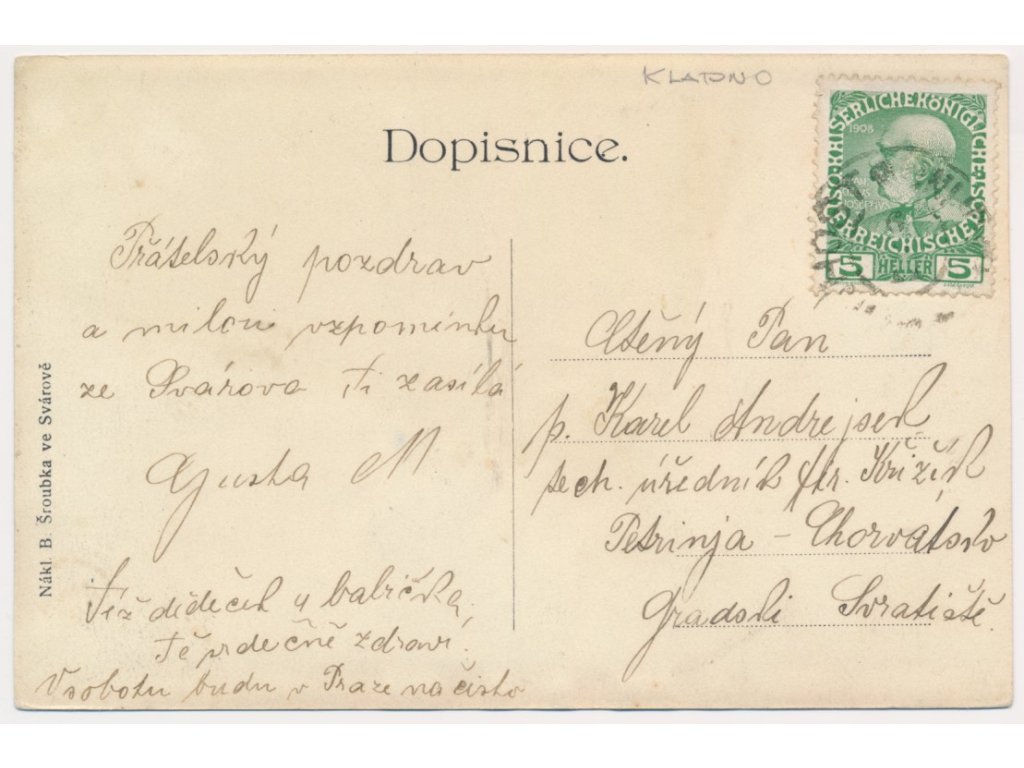 KLADNO
Dopisnice.
KAISERLICHE KÖNIGLICHE
ÖSTERREICHISCHE
1908
5 HELLER 5
Přátelský pozdrav
a milou vzpomínku
ze Svárova Ti zasílá
Gusta M
Též dědeček a babička
Tě srdečně zdraví.
V sobotu budu v Praze načisto
Nákl. B. Šroubka ve Svárově
Ctěný Pan
p. Karel Andrejsek
tech. úředník fir. Křižík
Petrinja – Chorvátsko
Gradski Svratiště.